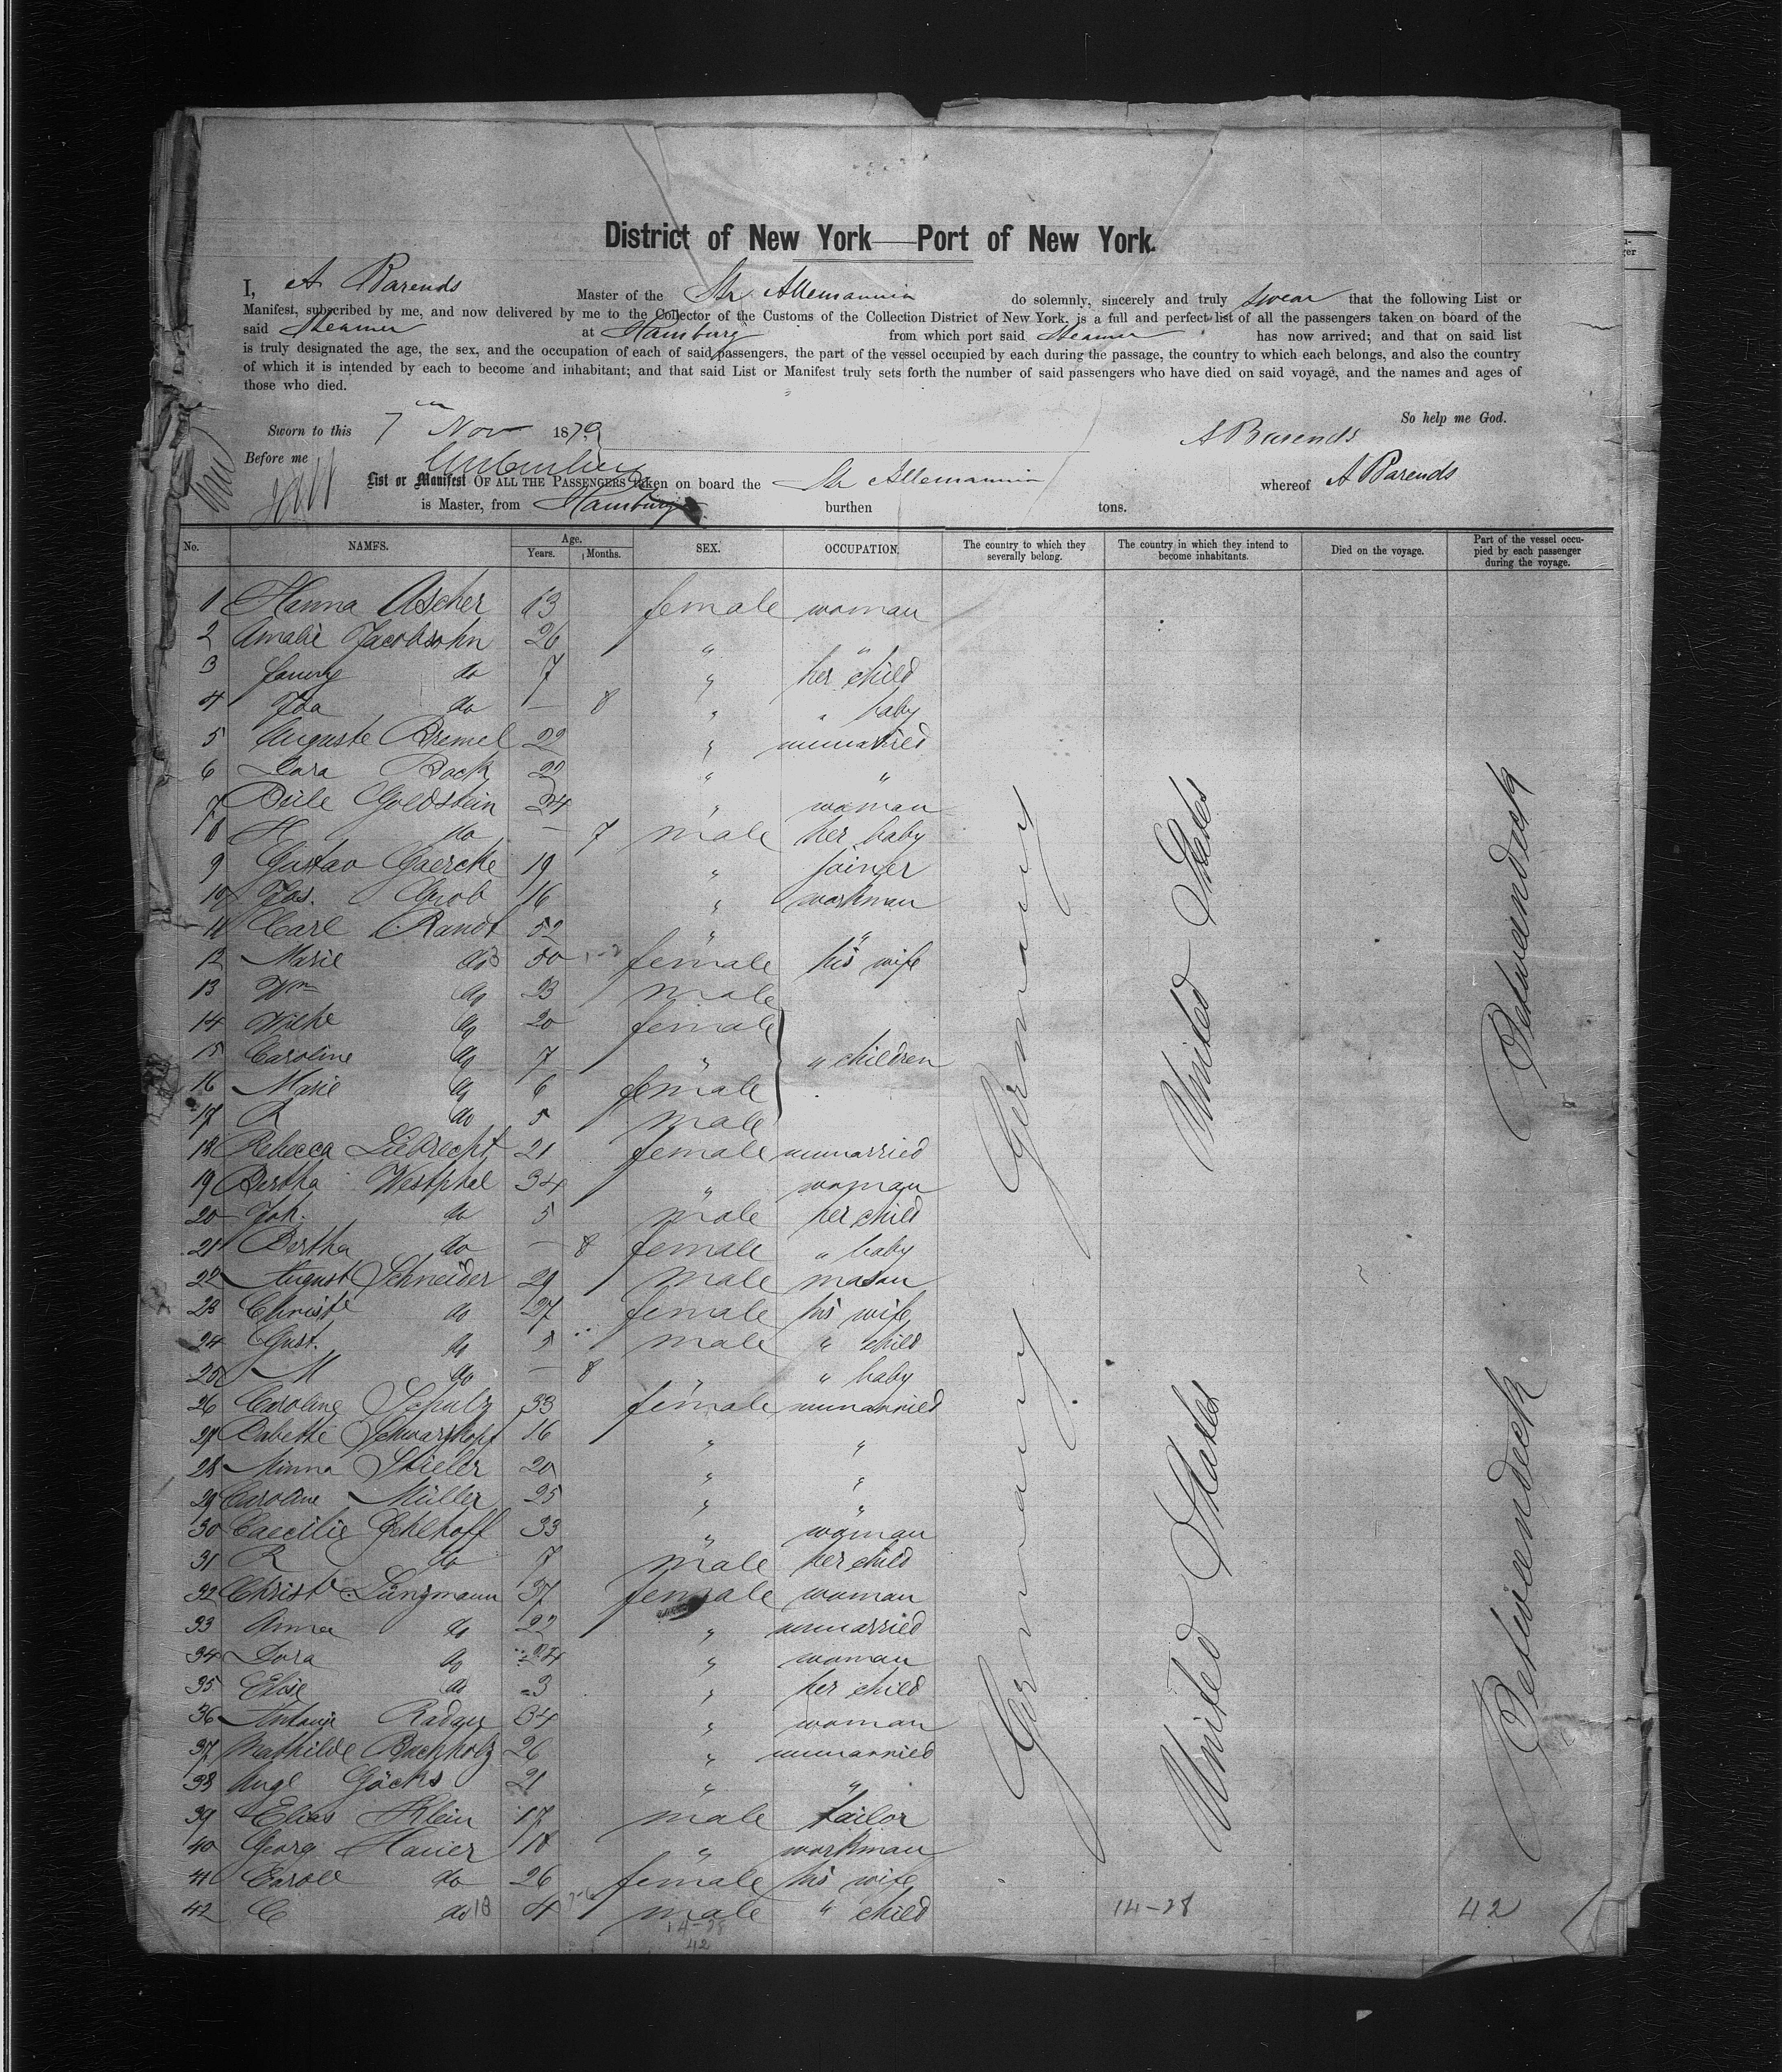 District of New York—Port of New York.
I, A Barends Master of the Str Allemannia do solemnly, sincerely and truly swear that the following List or
Manifest, subscribed by me, and now delivered by me to the Collector of the Customs of the Collection District of New York, is a full and perfect list of all the passengers taken on board of the
said Steamer at Hamburg from which port said Steamer has now arrived; and that on said list
is truly designated the age, the sex, and the occupation of each of said passengers, the part of the vessel occupied by each during the passage, the country to which each belongs, and also the country
of which it is intended by each to become and inhabitant; and that said List or Manifest truly sets forth the number of said passengers who have died on said voyage, and the names and ages of
those who died.
So help me God.
Sworn to this 7th Nov 1879 A Barends
Before me
List or Manifest OF ALL THE PASSENGERS taken on board the Str Allemannia whereof A Barends
is Master, from Hamburg burthen tons.
No. NAMES. Age. Years. Months. SEX. OCCUPATION. The country to which they severally belong. The country in which they intend to become inhabitants. Died on the voyage. Part of the vessel occupied by each passenger during the voyage.
1 Hanna Ascher 63 female woman
2 Amalie Jacobsohn 26 " "
3 Fanny do 7 " her child
4 Ida do — 8 " " baby
5 Auguste Bremel 22 " unmarried
6 Dora Bock 22 " "
7 Goldstein 24 " woman
8 H do — 7 male her baby
9 Gustav Gaercke 19 " joiner
10 Jos. Grob 16 " workman
11 Carl Randt 52 " "
12 Marie do 50 female his wife
13 Wm do 23 male
14 Wilhe do 20 female
15 Caroline do 7 " " children
16 Marie do 6 female
17 R do 5 male
18 Rebecca Liebrecht 21 female unmarried
19 Bertha Westphal 34 " woman
20 Joh. do 5 male her child
21 Bertha do — 8 female " baby
22 August Schneider 29 male mason
23 Christe do 27 female his wife
24 Gust. do 5 male " child
25 M do — 8 " " baby
26 Caroline Schulz 33 female unmarried
27 Babette Schwarzkopf 16 " "
28 Minna Stieler 20 " "
29 Caroline Müller 25 " "
30 Caecilie Schlhoff 33 " woman
31 R do 7 male her child
32 Christe Lüngmann 37 female woman
33 Anna do 22 " unmarried
34 Dora do 24 " woman
35 Elise do 3 " her child
36 Antonie Radau 34 " woman
37 Mathilde Buchholz 26 " unmarried
38 Augte Göcks 21 " "
39 Elias Klein 17 male tailor
40 Georg Hauer 18 " workman
41 Carole do 26 female his wife
42 C do 4 male " child
Germany
United States
Betweendeck
Germany
United States
Betweendeck
14–28
42
14–28
42